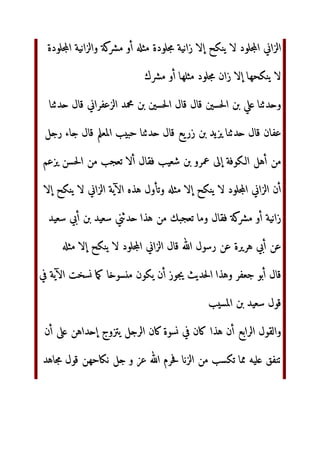 الزاني المجلود لا ينكح إلا زانية مجلودة مثله أو مشركة والزانية المجلودة
لا ينكحها إلا زان مجلود مثلها أو مشرك
وحدثنا علي بن الحسين قال قال الحسين بن محمد الزعفراني قال حدثنا
عفان قال حدثنا يزيد بن زريع قال حدثنا حبيب المعلم قال جاء رجل
من أهل الكوفة إلى عمرو بن شعيب فقال ألا تعجب من الحسن يزعم
أن الزاني المجلود لا ينكح إلا مثله وتأول هذه الآية الزاني لا ينكح إلا
زانية أو مشركة فقال وما تعجبك من هذا حدثني سعيد بن أبي سعيد
عن أبي هريرة عن رسول الله قال الزاني المجلود لا ينكح إلا مثله
قال أبو جعفر وهذا الحديث يجوز أن يكون منسوخا كما نسخت الآية في
قول سعيد بن المسيب
والقول الرابع أن هذا كان في نسوة كان الرجل يتزوج إحداهن على أن
تنفق عليه مما تكسب من الزنا فحرم الله عز و جل نكاحهن قول مجاهد